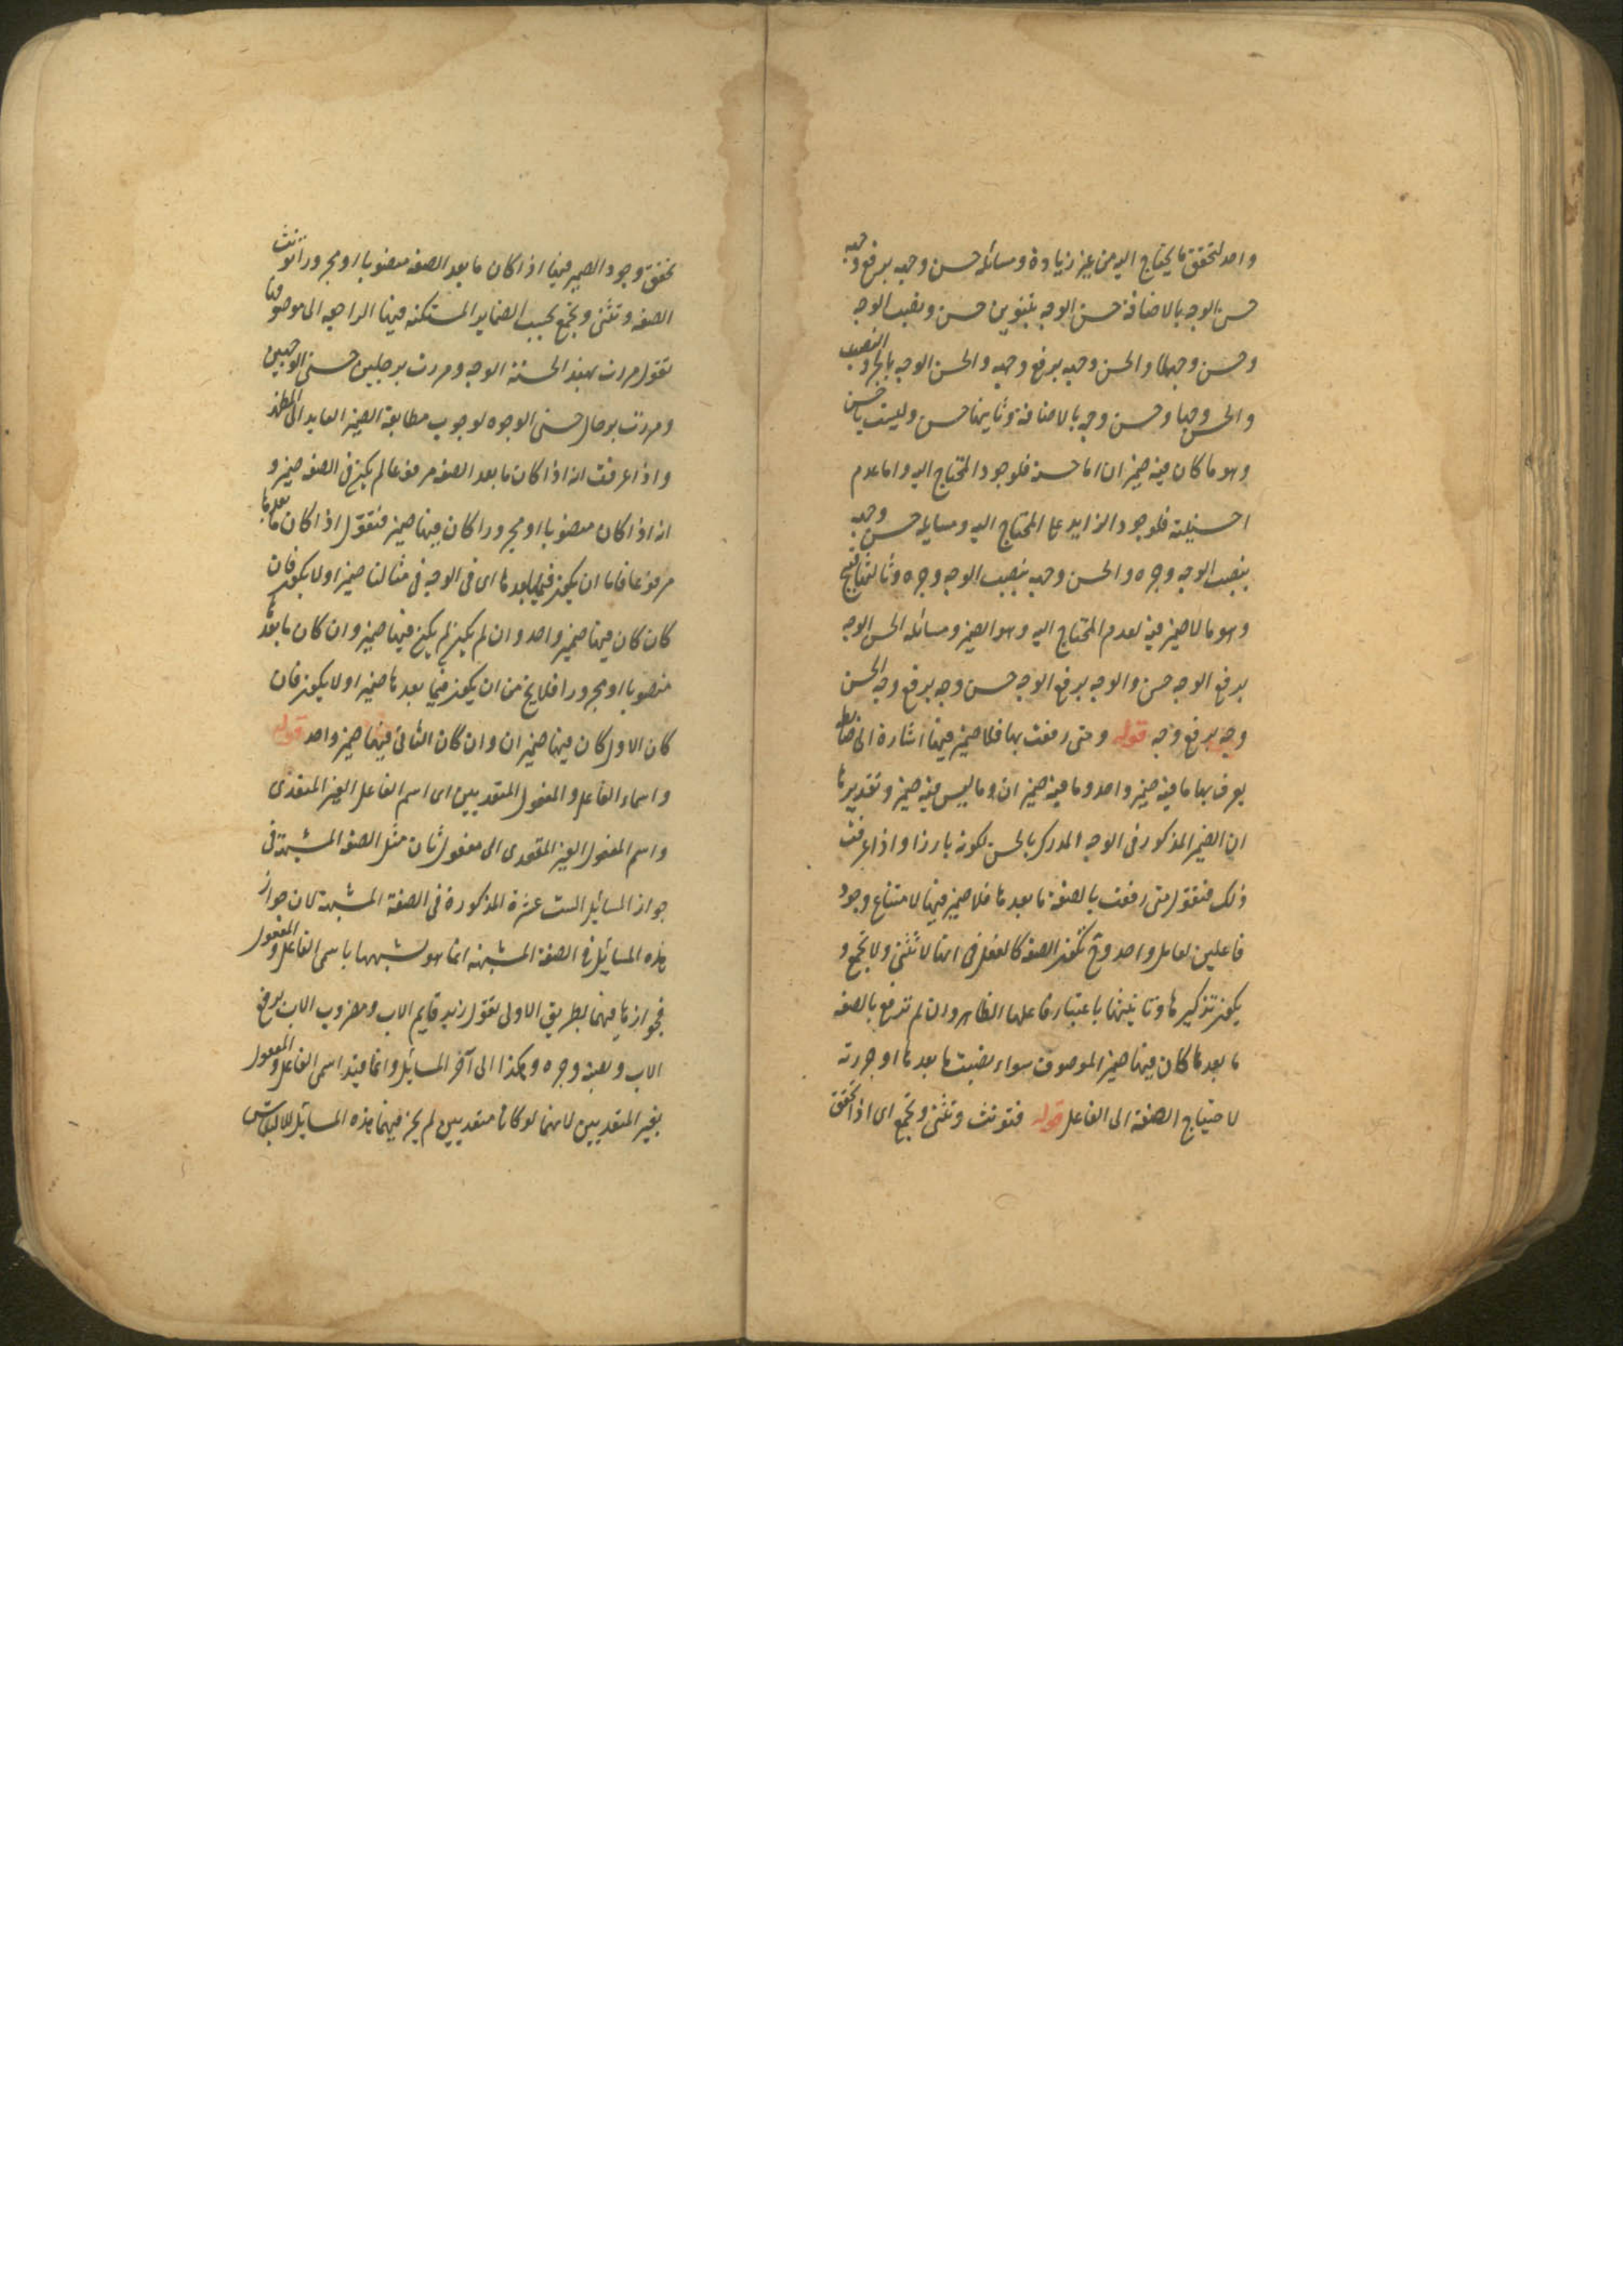 واحد لتحقق ما يحتاج اليه من غير زيادة ومسائله حسن وجهه برفع وجهه
حسن الوجه بالاضافة حسن الوجه بتنوين حسن ونصب الوجه
وحسن وجها والحسن وجهه برفع وجهه والحسن الوجه بالجر والنصب
والحسن وجها وحسن وجه بالاضافة وثانيها حسن وليست باحسن
وهو ما كان فيه ضميران اما حسنه فلوجود المحتاج اليه واما عدم
احسنيته فلوجود الزايد على المحتاج اليه ومسايله حسن وجهه
بنصب الوجه وجره والحسن وجهه بنصب الوجه وجره وثالثها قبيح
وهو ما لا ضمير فيه لعدم المحتاج اليه وهو الضمير ومسائله الحسن الوجه
برفع الوجه حسن والوجه برفع الوجه حسن وجه برفع وجه الحسن
وجه برفع وجه قوله ومتى رفعت بها فلا ضمير فيها اشارة الى ضابط
يعرف بها ما فيه ضمير واحد وما فيه ضميران وما ليس فيه ضمير وتقديرها
ان الضمير المذكور فى الوجه المدرك بالحسن لكونه بارزا واذا عرفت
ذلك فنقول متى رفعت بالصفة ما بعدها فلا ضمير فيها لامتناع وجود
فاعلين لعامل واحد وح تكون الصفة كالفعل فى انها لا تثنى ولا تجمع و
يكون تذكيرها وتانيثها باعتبار فاعلها الظاهر وان لم ترفع بالصفه
ما بعدها كان فيها ضمير الموصوف سواء نصبت ما بعدها او جررته
لاحتياج الصفة الى الفاعل قوله فتونث وتثنى وتجمع اى اذا تحقق
تحقق وجود الضمير فيها اذا كان ما بعد الصفه منصوبا او مجرورا تونث
الصفه وتثنى وتجمع بحسب الضماير المستكنه فيها الراجعه الى موصوفها
تقول مررت بهند الحسنة الوجه ومررت برجلين حسنى الوجهين
ومررت برجال حسنى الوجوه لوجوب مطابقة الضمير العايد الى المظهر
واذا عرفت انه اذا كان ما بعد الصفه مرفوعا لم يكن فى الصفه ضمير و
انه اذا كان منصوبا او مجرورا كان فيها ضمير فنقول اذا كان ما بعدها
مرفوعا فاما ان يكون فيما بعدها اى فى الوجه فى مثالنا ضمير او لا يكون فان
كان كان فيها ضمير واحد وان لم يكن لم يكن فيها ضمير وان كان ما بعدها
منصوبا او مجرورا فلا يخ من ان يكون فيما بعدها ضمير او لا يكون فان
كان الاول كان فيها ضميران وان كان الثانى فيها ضمير واحد قوله
واسماء الفاعل والمفعول المتعديين اى اسم الفاعل الغير المتعدى
واسم المفعول الغير المتعدى الى مفعول ثان مثل الصفه المشبهة فى
جواز المسايل الست عشرة المذكورة فى الصفة المشبهة لان جواز
هذه المسائل فى الصفة المشبهه انما هو لشبهها باسمى الفاعل والمفعول
فجوازها فيهما بطريق الاولى تقول زيد قايم الاب ومضروب الاب برفع
الاب ونصبه وجره وهكذا الى آخر المسايل وانما قيد اسمى الفاعل والمفعول
بغير المتعديين لانهما لو كانا متعديين لم يجز فيهما هذه المسايل للالتباس